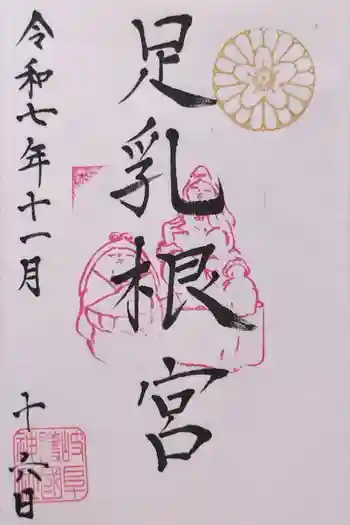 足乳根宮
令和七年十一月
十六日
岐阜
護國
神社